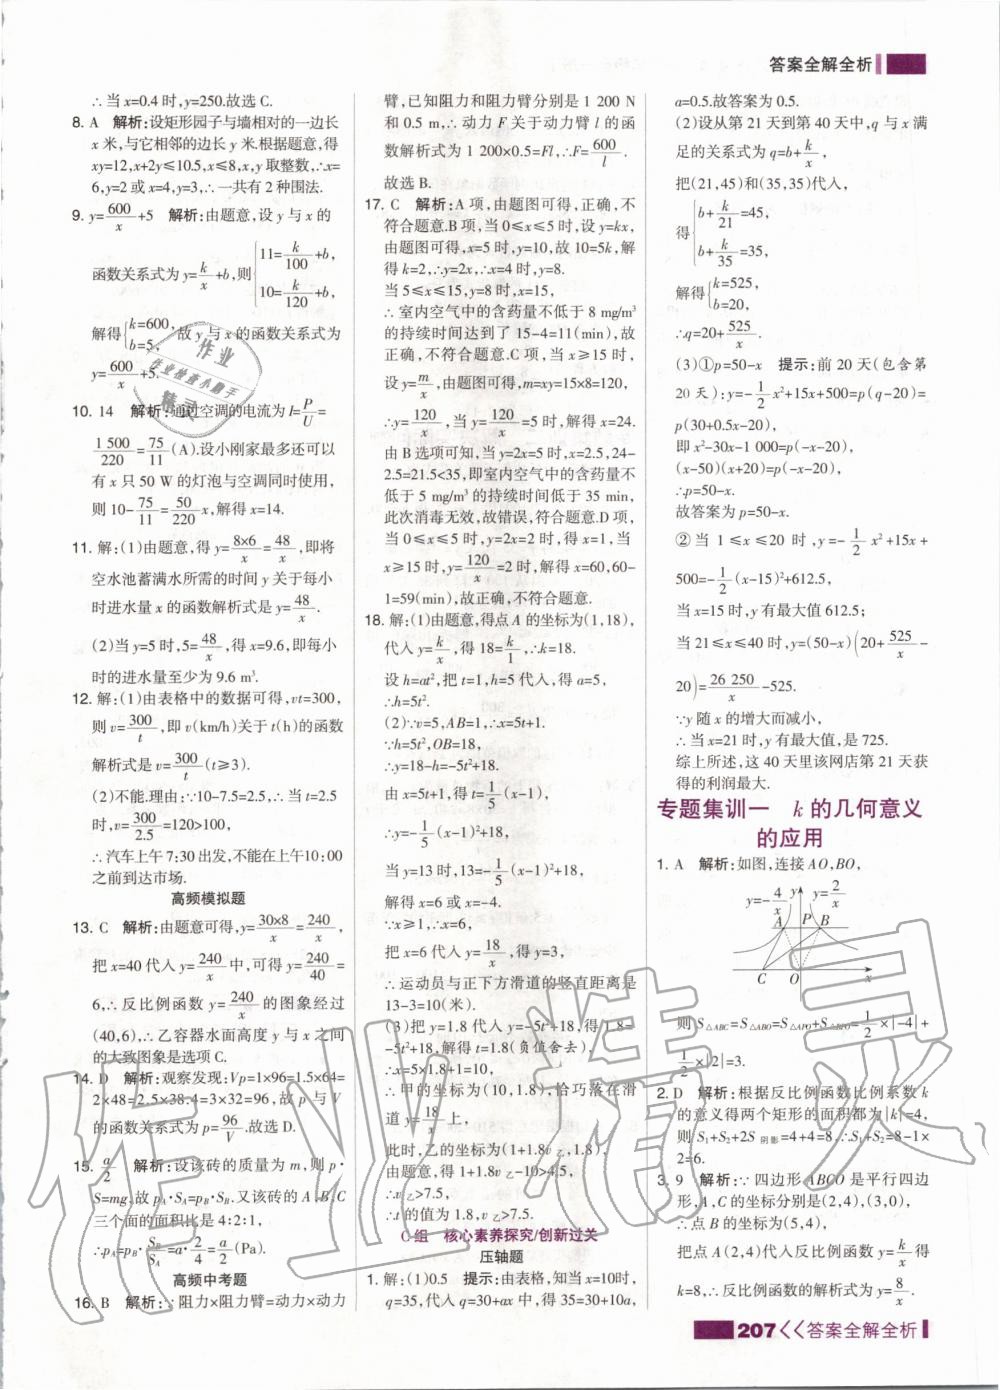 答案全解全析
∴当x=0.4时,y=250.故选C.
8. A 解析:设矩形园子与墙相对的一边长
x米,与它相邻的边长y米.根据题意,得
xy=12,x+2y≤10.5,x≤8,x,y取整数,∴x=
6,y=2或x=4,y=3,∴一共有2种围法.
9. y=600/x+5 解析:由题意,设y与x的
函数关系式为y=k/x+b,则{11=k/100+b, 10=k/120+b,
解得{k=600, b=5, 故y与x的函数关系式为
y=600/x+5.
10. 14 解析:通过空调的电流为I=P/U=
1 500/220=75/11(A).设小刚家最多还可以
有x只50 W的灯泡与空调同时使用,
则10-75/11=50/220x,解得x=14.
11. 解:(1)由题意,得y=8×6/x=48/x,即将
空水池蓄满水所需的时间y关于每小
时进水量x的函数解析式是y=48/x.
(2)当y=5时,5=48/x,得x=9.6,即每小
时的进水量至少为9.6 m³.
12. 解:(1)由表格中的数据可得,vt=300,
则v=300/t,即v(km/h)关于t(h)的函数
解析式是v=300/t(t≥3).
(2)不能.理由:∵10-7.5=2.5,∴当t=2.5
时,v=300/2.5=120>100,
∴汽车上午7:30出发,不能在上午10:00
之前到达市场.
高频模拟题
13. C 解析:由题意可得,y=30×8/x=240/x,
把x=40代入y=240/x中,可得y=240/40=
6,∴反比例函数y=240/x的图象经过
(40,6),∴乙容器水面高度y与x之间
的大致图象是选项C.
14. D 解析:观察发现:Vp=1×96=1.5×64=
2×48=2.5×38.4=3×32=96,故p与V
的函数关系式为p=96/V.故选D.
15. a/2 解析:设该砖的质量为m,则p·
S=mg,故pA·SA=pB·SB.又该砖的A,B,C
三个面的面积比是4:2:1,
∴pA=pB·SB/SA=a·2/4=a/2(Pa).
高频中考题
16. B 解析:∵阻力×阻力臂=动力×动力
臂,已知阻力和阻力臂分别是1 200 N
和0.5 m,∴动力F关于动力臂l的函
数解析式为1 200×0.5=Fl,∴F=600/l.
故选B.
17. C 解析:A项,由题图可得,正确,不
符合题意.B项,当0≤x≤5时,设y=kx,
由题图可得,x=5时,y=10,故10=5k,解
得k=2,∴y=2x,∴x=4时,y=8.
当5≤x≤15,y=8时,x=15,
∴室内空气中的含药量不低于8 mg/m³
的持续时间达到了15-4=11(min),故
正确,不符合题意.C项,当x≥15时,
设y=m/x,由题图可得,m=xy=15×8=120,
∴y=120/x,当y=120/x=5时,解得x=24.
由B选项可知,当y=2x=5时,x=2.5,24-
2.5=21.5<35,即室内空气中的含药量不
低于5 mg/m³的持续时间低于35 min,
此次消毒无效,故错误,符合题意.D项,
当0≤x≤5时,y=2x=2时,得x=1,当
x≥15时,y=120/x=2时,解得x=60,60-
1=59(min),故正确,不符合题意.
18. 解:(1)由题意,得点A的坐标为(1,18),
代入y=k/x,得18=k/1,∴k=18.
设h=at²,把t=1,h=5代入,得a=5,
∴h=5t².
(2)∵v=5,AB=1,∴x=5t+1.
∵h=5t²,OB=18,
∴y=18-h=-5t²+18.
由x=5t+1,得t=1/5(x-1),
∴y=-1/5(x-1)²+18,
当y=13时,13=-1/5(x-1)²+18,
解得x=6或x=-4.
∵x≥1,∴x=6,
把x=6代入y=18/x,得y=3,
∴运动员与正下方滑道的竖直距离是
13-3=10(米).
(3)把y=1.8代入y=-5t²+18,得1.8=
-5t²+18,解得t=1.8(负值舍去),
∴x=5×1.8+1=10,
∴甲的坐标为(10,1.8),恰巧落在滑
道y=18/x上,
此时,乙的坐标为(1+1.8v乙,1.8),
由题意,得1+1.8v乙-10>4.5,
∴v乙>7.5,
∴t的值为1.8,v乙>7.5.
C组 核心素养探究/创新过关
压轴题
1. 解:(1)0.5 提示:由表格,知当x=10时,
q=35,代入q=30+ax中,得35=30+10a,
a=0.5.故答案为0.5.
(2)设从第21天到第40天中,q与x满
足的关系式为q=b+k/x,
把(21,45)和(35,35)代入,
得{b+k/21=45, b+k/35=35,
解得{k=525, b=20,
∴q=20+525/x.
(3)①p=50-x 提示:前20天(包含第
20天):y=-1/2x²+15x+500=p(q-20)=
p(30+0.5x-20),
即x²-30x-1 000=p(-x-20),
(x-50)(x+20)=p(-x-20),
∴p=50-x.
故答案为p=50-x.
②当1≤x≤20时,y=-1/2x²+15x+
500=-1/2(x-15)²+612.5;
当x=15时,y有最大值612.5;
当21≤x≤40时,y=(50-x)(20+525/x-
20)=26 250/x-525.
∵y随x的增大而减小,
∴当x=21时,y有最大值,是725.
综上所述,这40天里该网店第21天获
得的利润最大.
专题集训一 k的几何意义
的应用
1. A 解析:如图,连接AO,BO,
y=-4/x y y=2/x
A P B
C O x
则S△ABC=S△ABO=S△APO+S△BPO=1/2×|-4|+
1/2×|2|=3.
2. D 解析:根据反比例函数比例系数k
的意义得两个矩形的面积都为|k|=4,
则S1+S2+2S阴影=4+4=8.∴S1+S2=8-1×
2=6.
3. 9 解析:∵四边形ABCO是平行四边
形,A,C的坐标分别是(2,4),(3,0),
∴点B的坐标为(5,4),
把点A(2,4)代入反比例函数y=k/x得
k=8,∴反比例函数的解析式为y=8/x.
207<<答案全解全析
作业
作业检查小助手
精灵
作业精灵